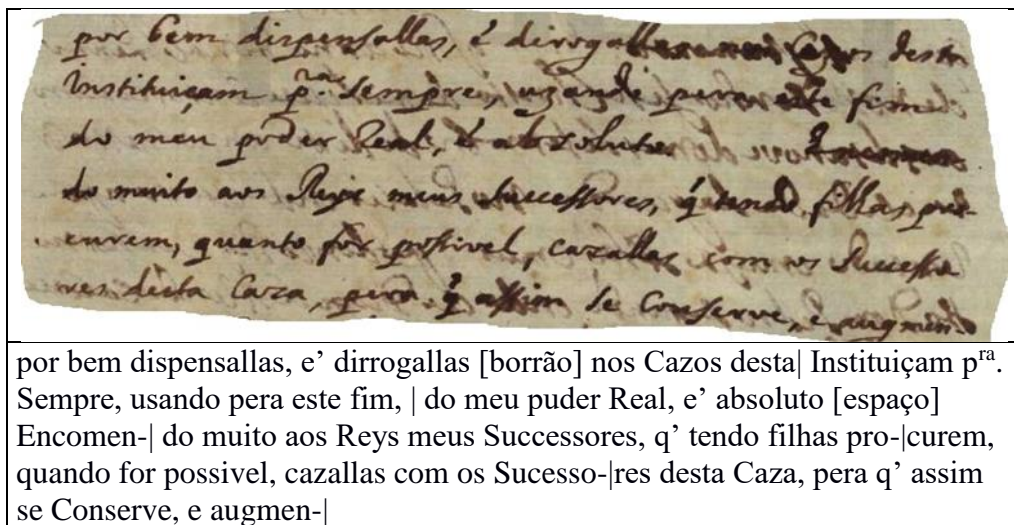 por bem dispensallas, é dirogallas nos Cazos desta
Instituiçam p.ra Sempre, uzando pera este fim
do meu poder Real, é absoluto.
do muito aos Reys meus Successores, q̃ tendo filhas pro-
curem, quanto for possivel, cazallas com os Successo
res desta Caza, pera q̃ assim se Conserve, e augmen
por bem dispensallas, e’ dirrogallas [borrão] nos Cazos desta| Instituiçam pʳᵃ.
Sempre, usando pera este fim, | do meu puder Real, e’ absoluto [espaço]
Encomen-| do muito aos Reys meus Successores, q’ tendo filhas pro-|curem,
quando for possivel, cazallas com os Sucesso-|res desta Caza, pera q’ assim
se Conserve, e augmen-|